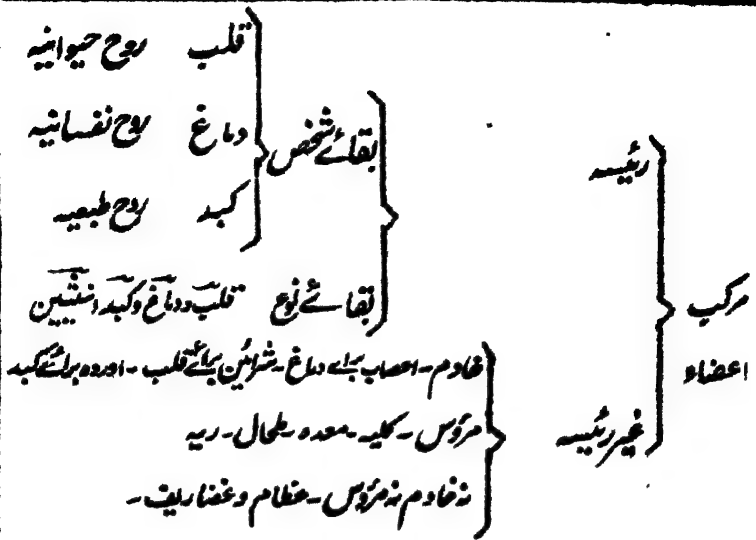 مرکب
اعضاء
رئیسہ
بقائے شخص
قلب روح حیوانیہ
دماغ روح نفسانیہ
کبد روح طبعیہ
بقائے نوع قلب ودماغ وکبد انثیین
غیر رئیسہ
خادم - اعصاب برائے دماغ - شرائین برائے قلب - اوردہ برائے کبد
مرؤس - کلیہ - معدہ - طحال - ریہ
نہ خادم نہ مرؤس - عظام و غضاریف -